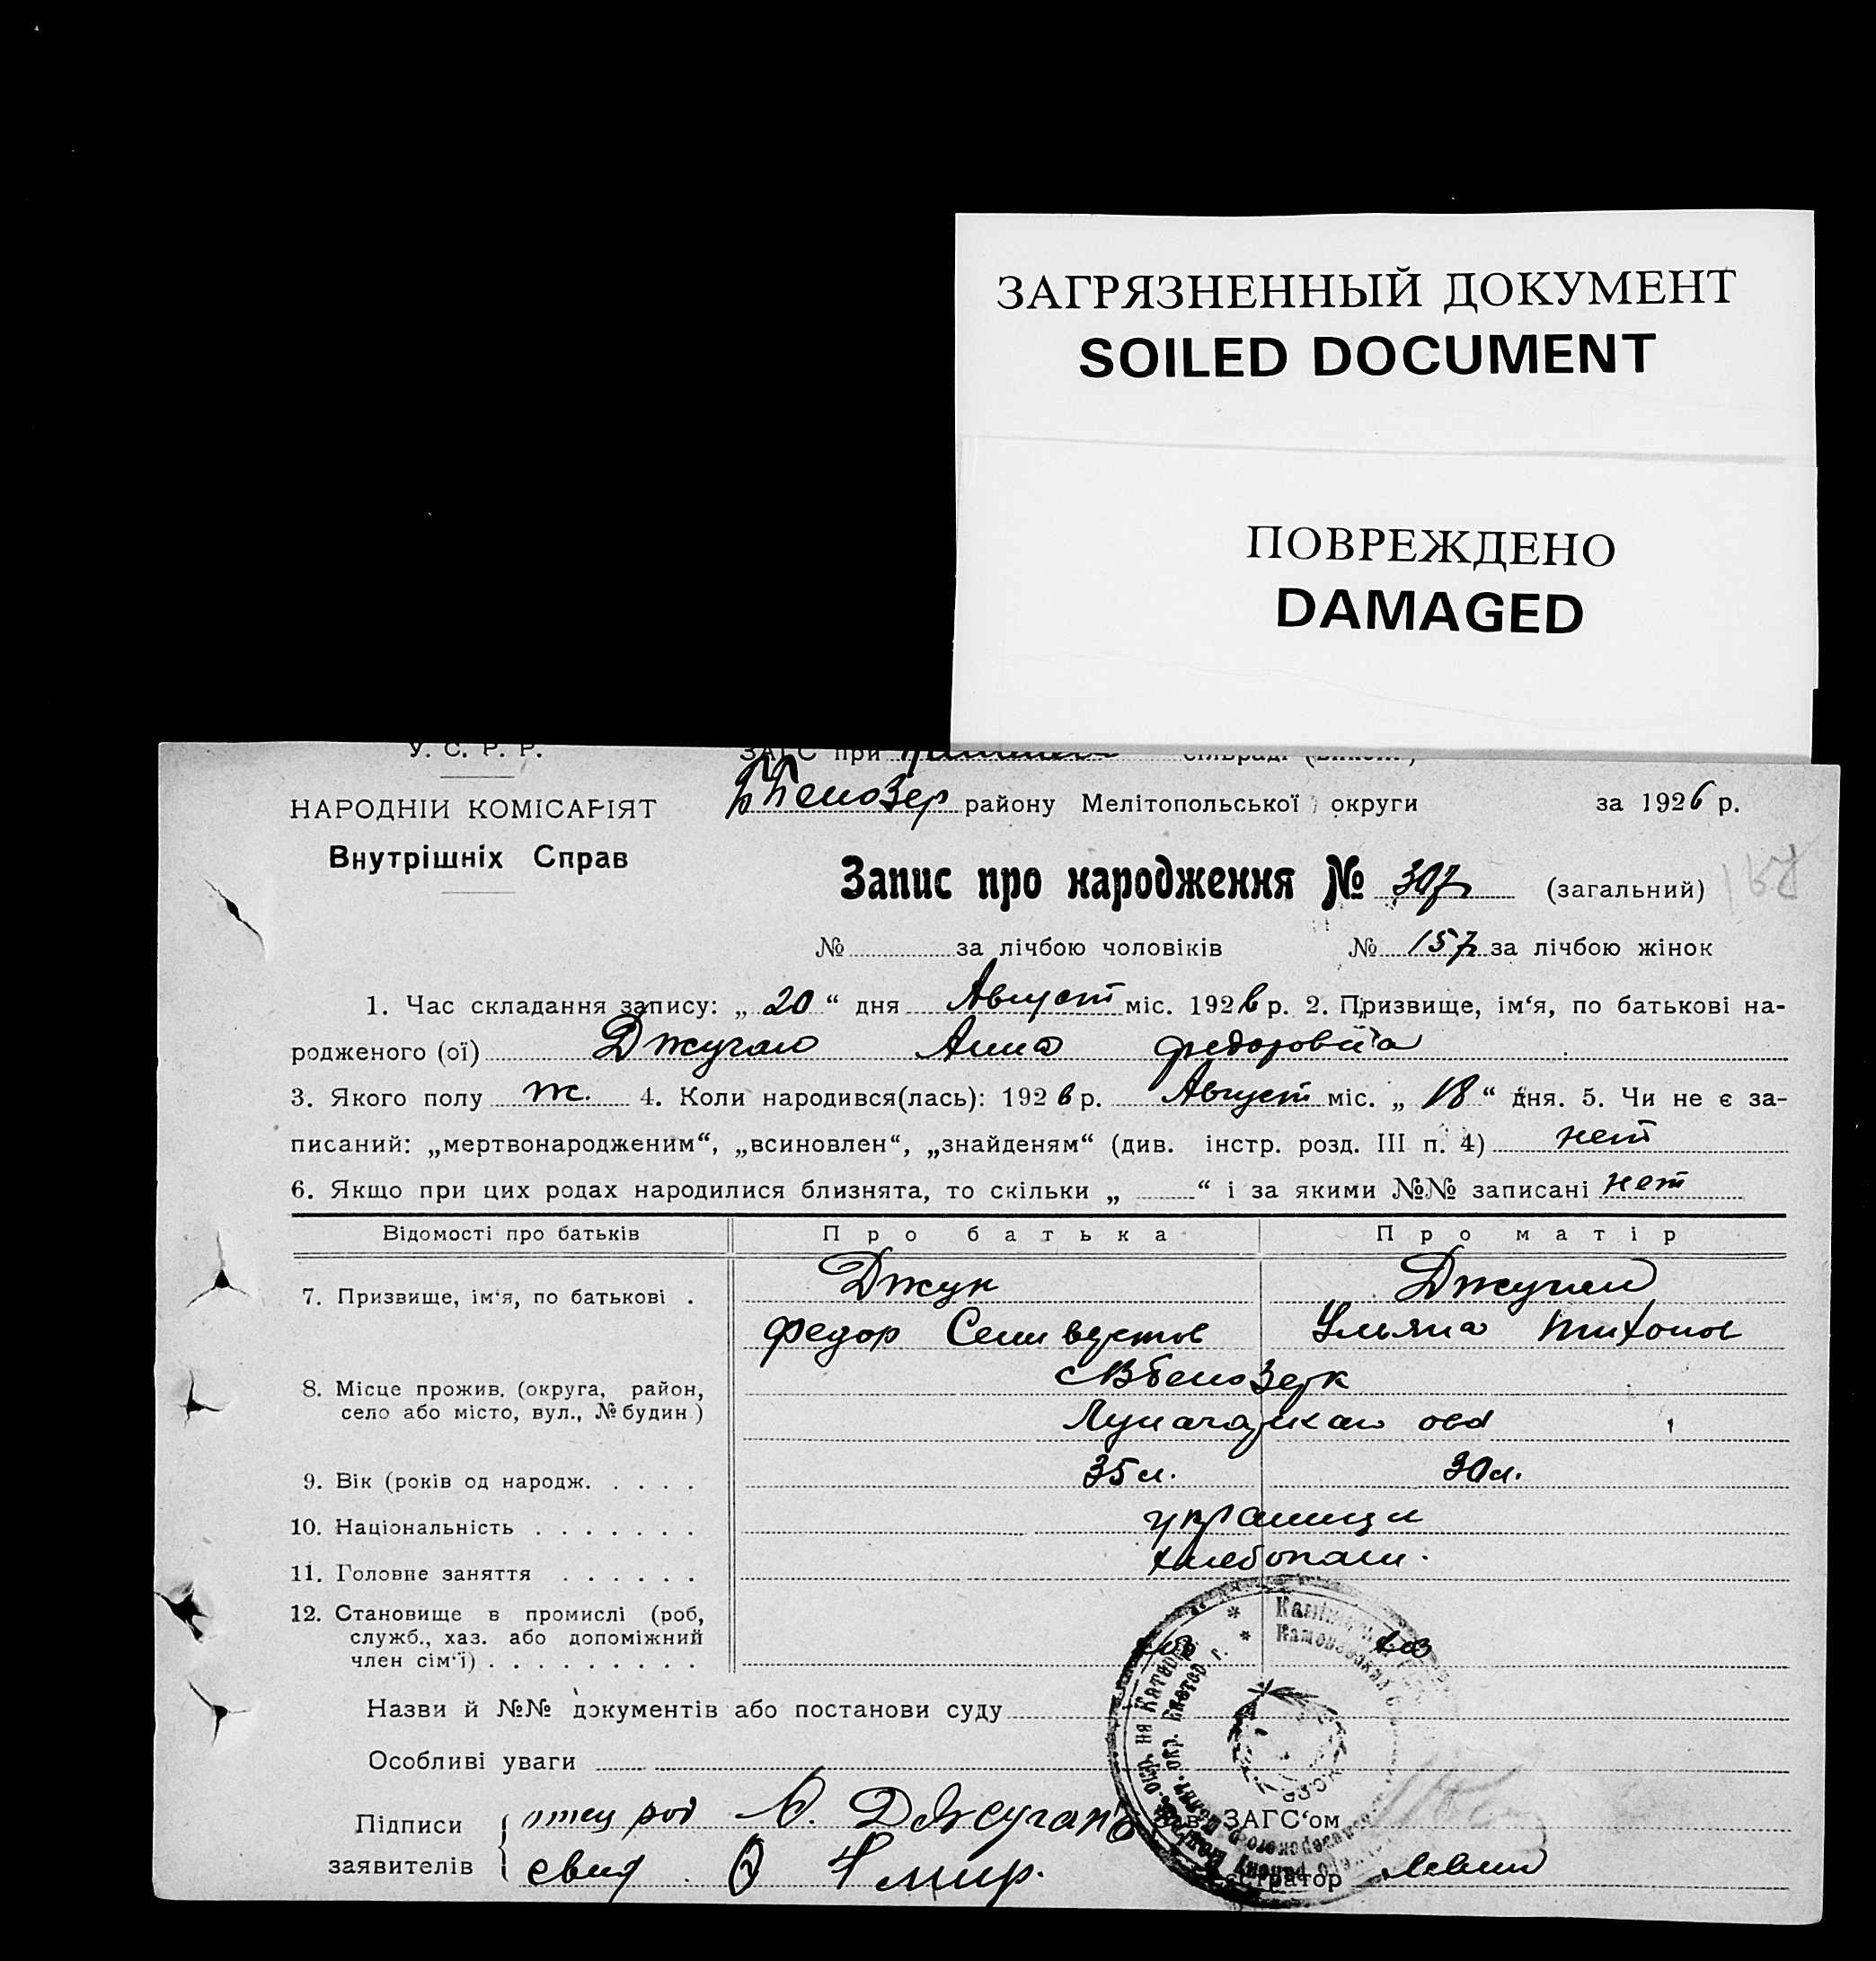 ЗАГРЯЗНЕННЫЙ ДОКУМЕНТ
SOILED DOCUMENT
ПОВРЕЖДЕНО
DAMAGED
У. С. Р. Р.
ЗАГС при сільраді
НАРОДНІЙ КОМІСАРІЯТ
Внутрішніх Справ
району Мелітопольської округи за 1926 р.
Запис про народження № 307 (загальний)
№ за лічбою чоловіків № 157 за лічбою жінок
1. Час складання запису: „ 20 “ дня Август міс. 1926 р. 2. Призвище, ім‘я, по батькові на-
родженого (ої) Анна
3. Якого полу ж. 4. Коли народився(лась): 1926 р. Август міс. „ 18 “ дня. 5. Чи не є за-
писаний: „мертвонародженим“, „всиновлен“, „знайденям“ (див. інстр. розд. III п. 4) нет
6. Якщо при цих родах народилися близнята, то скільки „ “ і за якими №№ записані нет
Відомості про батьків Про батька Про матір
7. Призвище, ім‘я, по батькові . Джук
Федор Ульяна Тихонов
8. Місце прожив. (округа, район,
село або місто, вул., № будин.)
9. Вік (років од народж. . . . . 35 л. 30 л.
10. Національність . . . . . . . украинцы
11. Головне заняття . . . . . . хлебопаш.
12. Становище в промислі (роб,
служб., хаз. або допоміжний
член сім‘ї) . . . . . . . . . хоз хоз
Назви й №№ документів або постанови суду
Особливі уваги
Підписи
заявителів
отец
свид
Зав. ЗАГС‘ом
Реєстратор